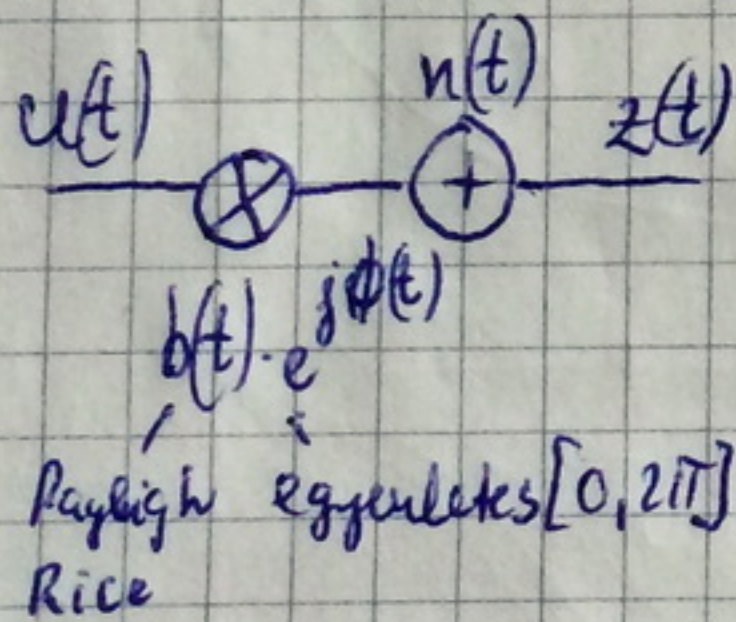 u(t) n(t) z(t)
b(t)·e^jϕ(t)
Rayleigh egyenletes [0, 2π]
Rice